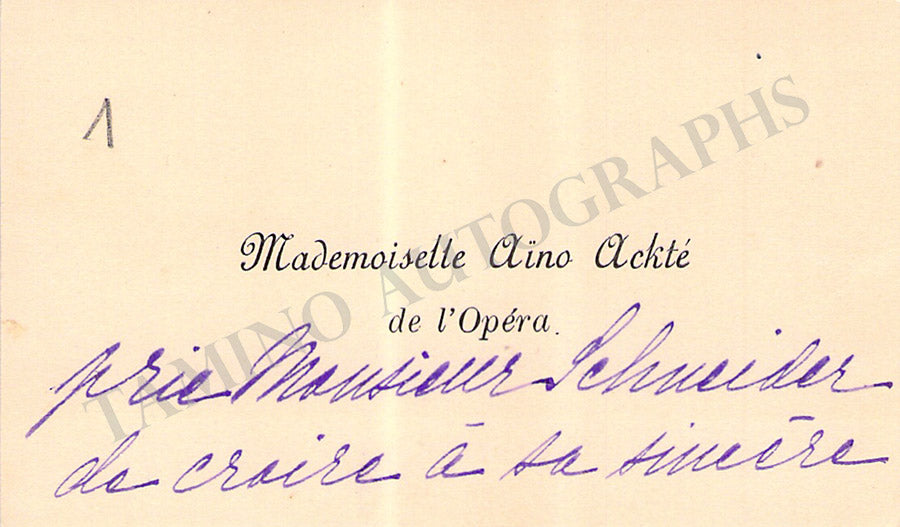 1
TAMINO AUTOGRAPHS
Mademoiselle Aïno Ackté
de l'Opéra.
prie Monsieur Schneider
de croire à sa sincère